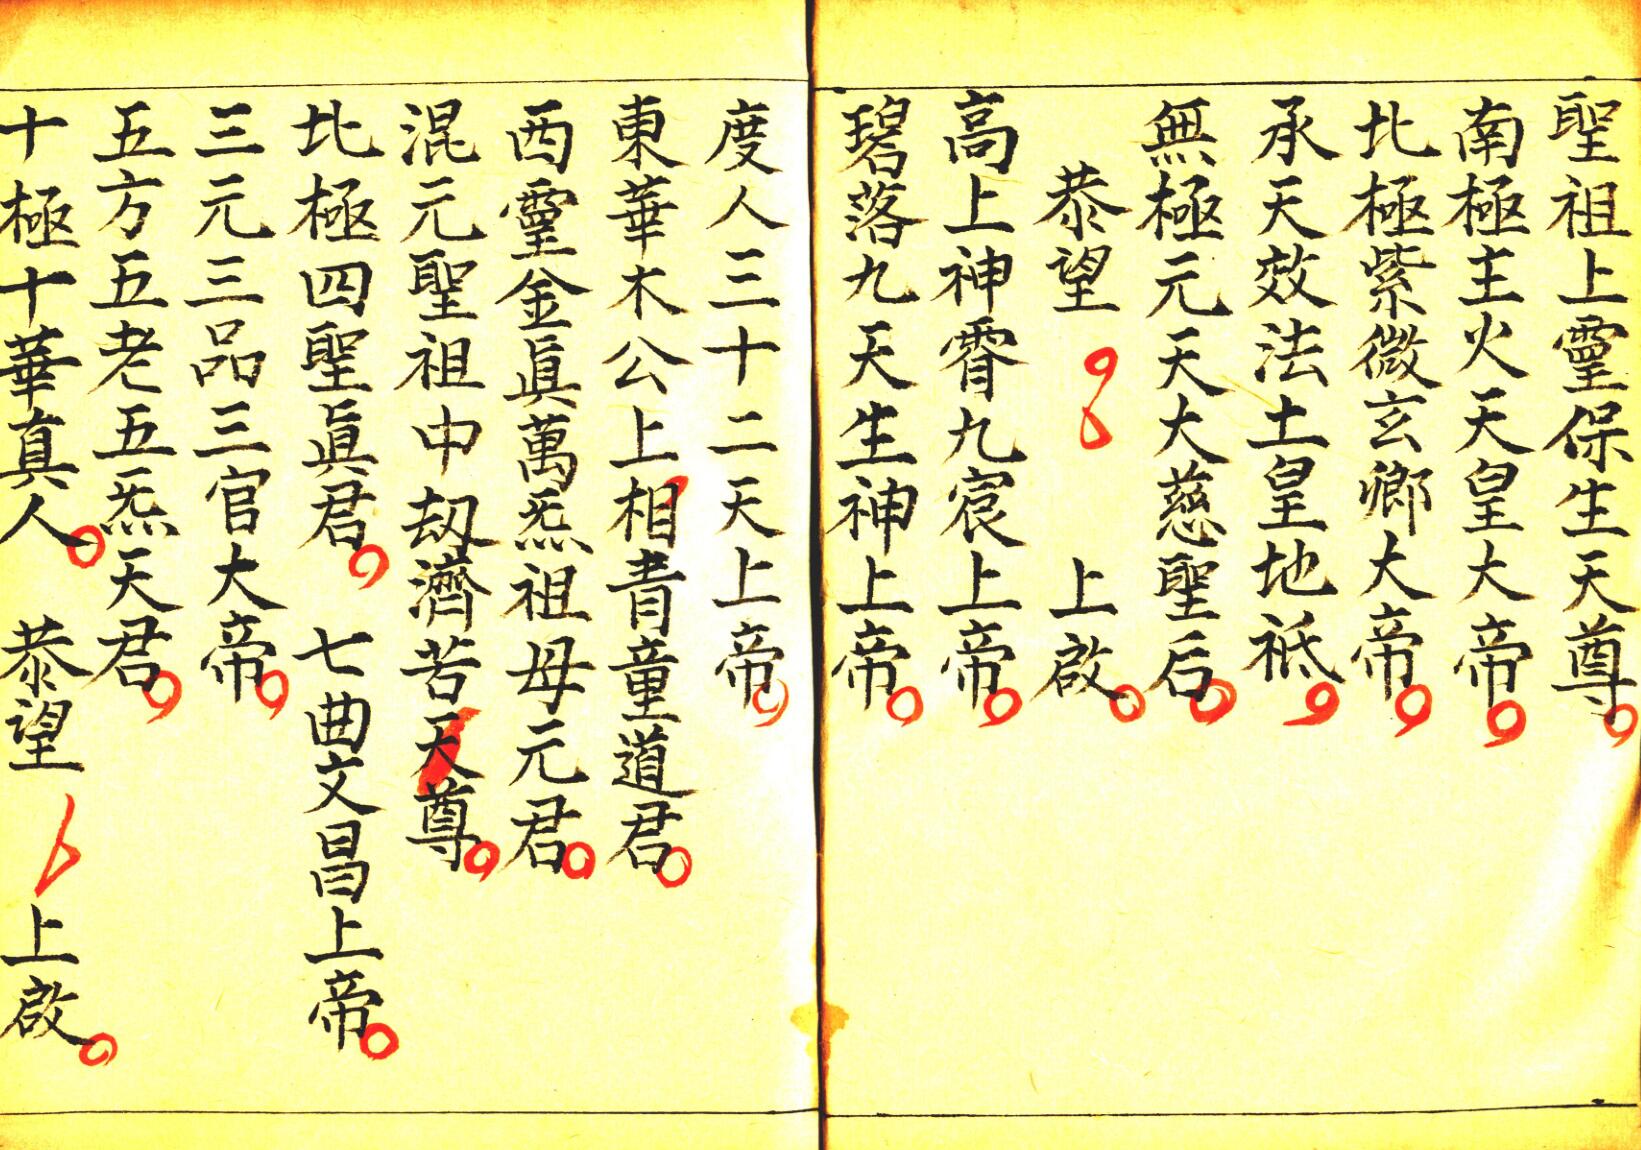 聖祖上靈保生天尊
南極主火天皇大帝
北極紫微玄卿大帝
承天效法土皇地祗
無極元天大慈聖后
恭望 上啟
高上神霄九宸上帝
碧落九天生神上帝
度人三十二天上帝
東華木公上相青童道君
西靈金眞萬炁祖母元君
混元聖祖中刼濟苦天尊
北極四聖眞君 七曲文昌上帝
三元三品三官大帝
五方五老五炁天君
十極十華真人 恭望 上啟